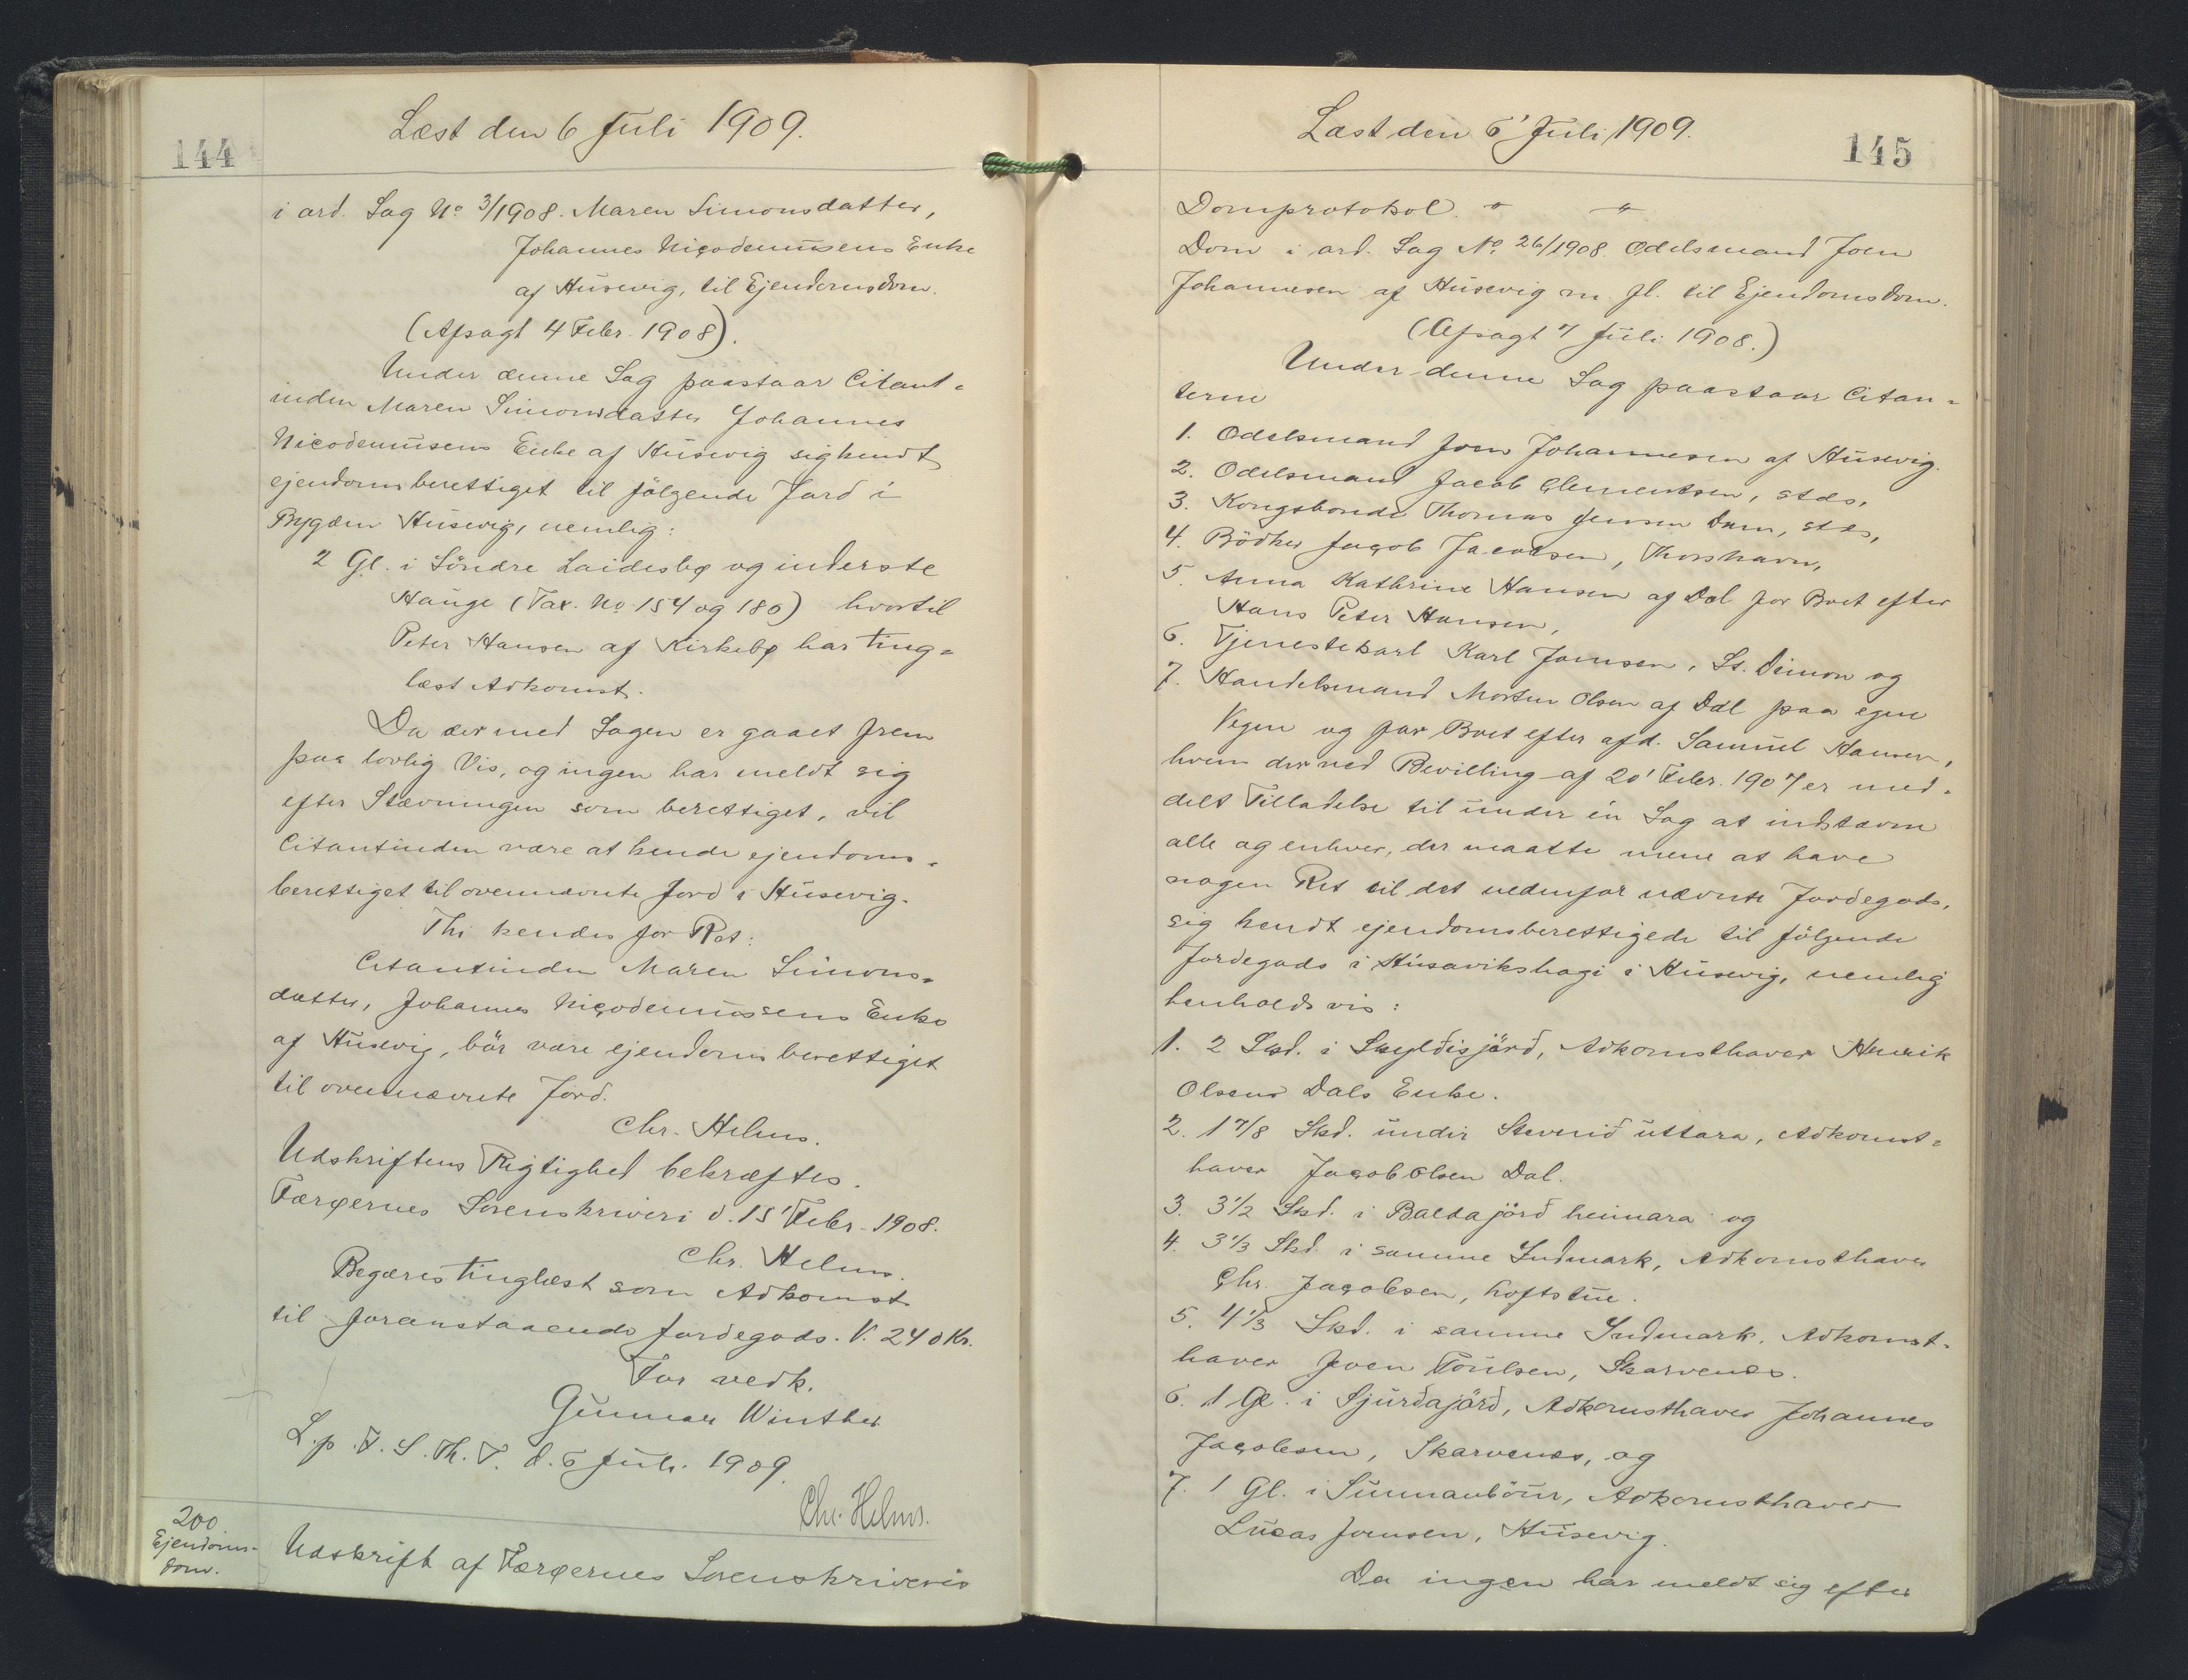 144
Læst den 6 Juli 1909.
i ord. Sag No 3/1908. Maren Simonsdatter,
Johannes Nicodemusens Enke
af Húsevig, til Ejendomsdom.
(Afsagt 4 Febr. 1908).
Under denne Sag paastaar Citant-
inden Maren Simonsdatter Johannes
Nicodemusens Enke af Húsevig sig kendt
ejendomsberettiget til følgende Jord i
Bygden Húsevig, nemlig:
2 Gl. i Söndre Laidesbø og inderste
Hauge (Tax. No 154 og 180) hvortil
Peter Hansen af Kirkebø har ting-
læst Adkomst.
Da der med Sagen er gaaet frem
paa lovlig Vis, og ingen har meldt sig
efter Stævningen som berettiget, vil
Citantinden være at kende ejendoms-
berettiget til ovennævnte Jord i Húsevig.
Thi kendes for Ret:
Citantinden Maren Simons-
datter, Johannes Nicodemusens Enke
af Húsevig, bör være ejendomsberettiget
til ovennævnte Jord.
Chr. Helms.
Udskriftens Rigtighed bekræftes.
Færøernes Sorenskriveri d. 15' Febr. 1908.
Chr. Helms.
Begæres tinglæst som Adkomst
til foranstaaende Jordegods. V. 240 Kr.
For vedk.
Gunnar Winther
L. p. V. S. Th. T. d. 6 Juli 1909.
Chr. Helms.
200
Ejendoms-
dom.
Udskrift af Færøernes Sorenskriveris
145
Læst den 6' Juli 1909.
Domprotokol. " "
Dom i ord. Sag No 26/1908. Odelsmand Joen
Johannesen af Húsevig m. fl. til Ejendomsdom.
(Afsagt 7 Juli 1908.)
Under denne Sag paastaar Citan-
terne
1. Odelsmand Joen Johannesen af Húsevig.
2. Odelsmand Jacob Clementsen, stds,
3. Kongsbonde Thomas Jensen Dam, stds,
4. Bödker Jacob Jacobsen, Thorshavn,
5. Anna Kathrine Hansen af Dal for Boet efter
Hans Peter Hansen,
6. Tjenestekarl Karl Joensen, St. Dimon og
7. Handelsmand Morten Olsen af Dal paa egne
Vegne og for Boet efter afd. Samúel Hansen,
hvem der ved Bevilling af 20' Febr. 1907 er med-
delt Tilladelse til under én Sag at indstævne
alle og enhver, der maatte mene at have
nogen Ret til det nedenfor nævnte Jordegods,
sig kendt ejendomsberettigede til følgende
Jordegods i Húsavikshagi i Húsevig, nemlig
henholdsvis:
1. 2 Skd. i Skyldisjörd, Adkomsthaver Henrik
Olsens Dals Enke.
2. 1 7/8 Skd. undir Stevnið uttara, Adkomst-
haver Jacob Olsen Dal.
3. 3 1/2 Skd. i Baldajörd heimara og
4. 3 1/3 Skd. i samme Indmark, Adkomsthaver
Chr. Jacobsen, Loftstue.
5. 4 1/3 Skd. i samme Indmark. Adkomst-
haver Joen Poulsen, Skarvenes.
6. 1 Gl. i Sjúrdajörd, Adkomsthaver Johannes
Jacobsen, Skarvenes, og
7. 1 Gl. i Sunnanböur, Adkomsthaver
Lucas Joensen, Húsevig.
Da ingen har meldt sig efter